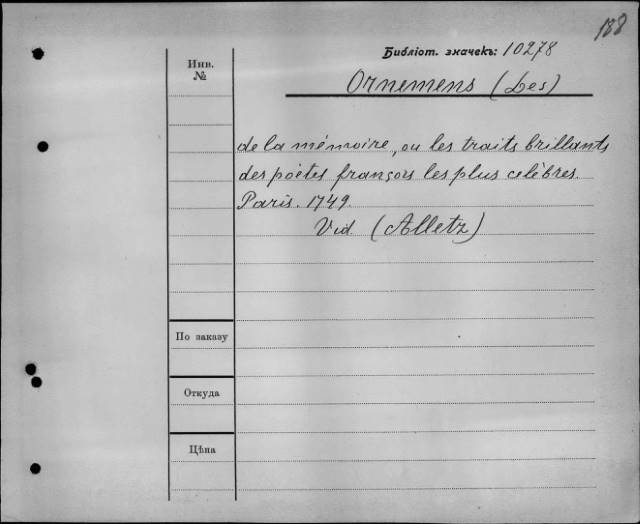 188
Библіот. значекъ: 10278
Инв.
№
Ornemens (Les)
de la mémoire, ou les traits brillants
des poètes françois les plus celèbres.
Paris. 1749.
Vid. (Alletz)
По заказу
Откуда
Цѣна